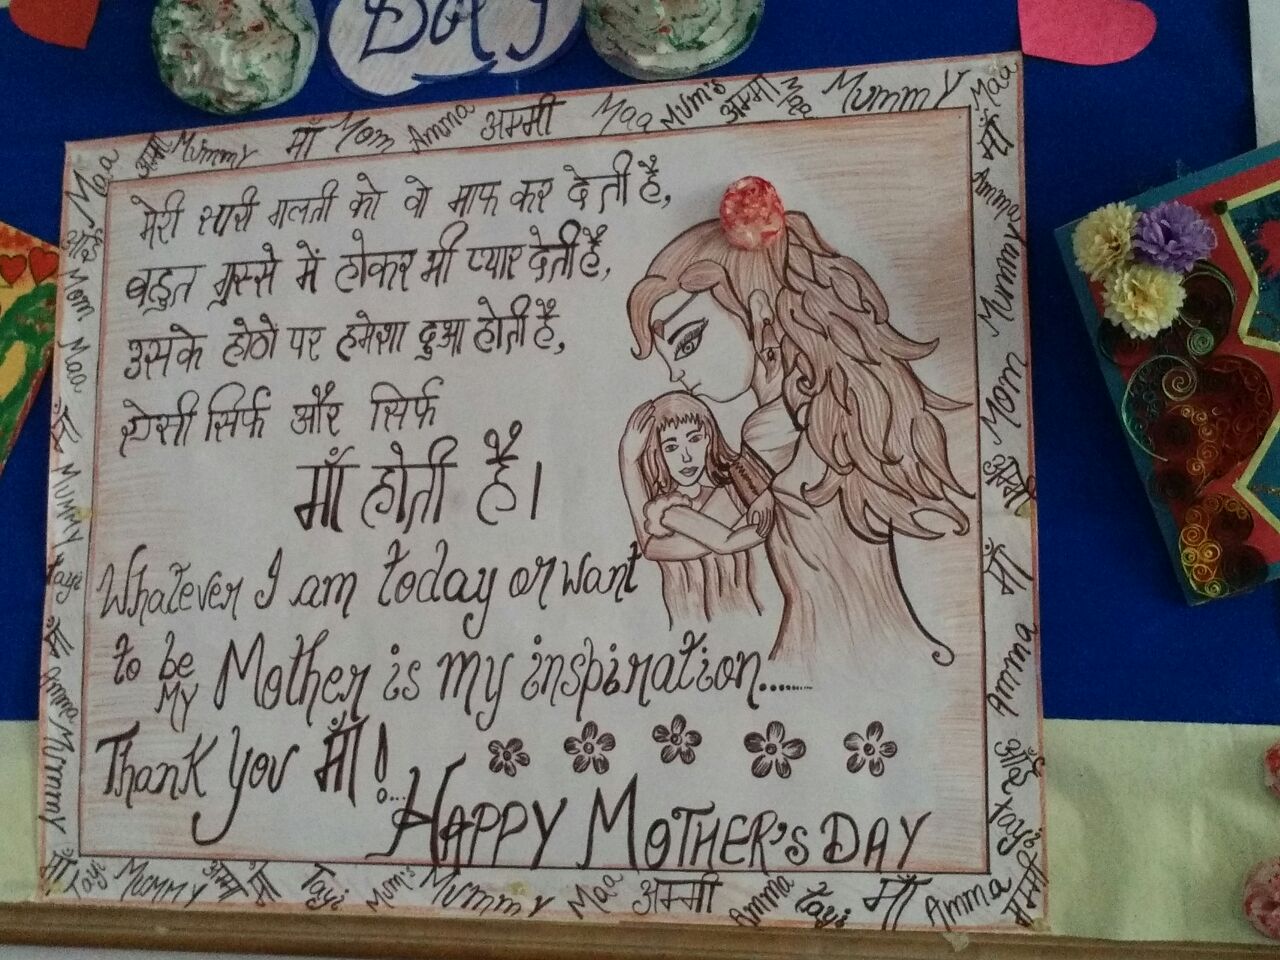 DAY
Maa अम्मी Mummy माँ Mom Amma अम्मी Maa Mum's अम्मा Maa Mummy Maa
मेरी सारी गलती को वो माफ कर देती है,
बहुत गुस्से में होकर भी प्यार देती है,
उसके होठो पर हमेशा दुआ होती है,
ऐसी सिर्फ और सिर्फ
माँ होती है।
Whatever I am today or want
to be My Mother is my inspiration........
Thank you माँ!
HAPPY MOTHER'S DAY
आई Mom Maa माँ Mummy Tayi माँ Amma Mummy
माँ Amma Mummy Mom अम्मी माँ Amma आई Tayi
माँ Tayi Mummy अम्मा माँ Tayi Mum's Mummy Maa अम्मी Amma Tayi माँ Amma अम्मी